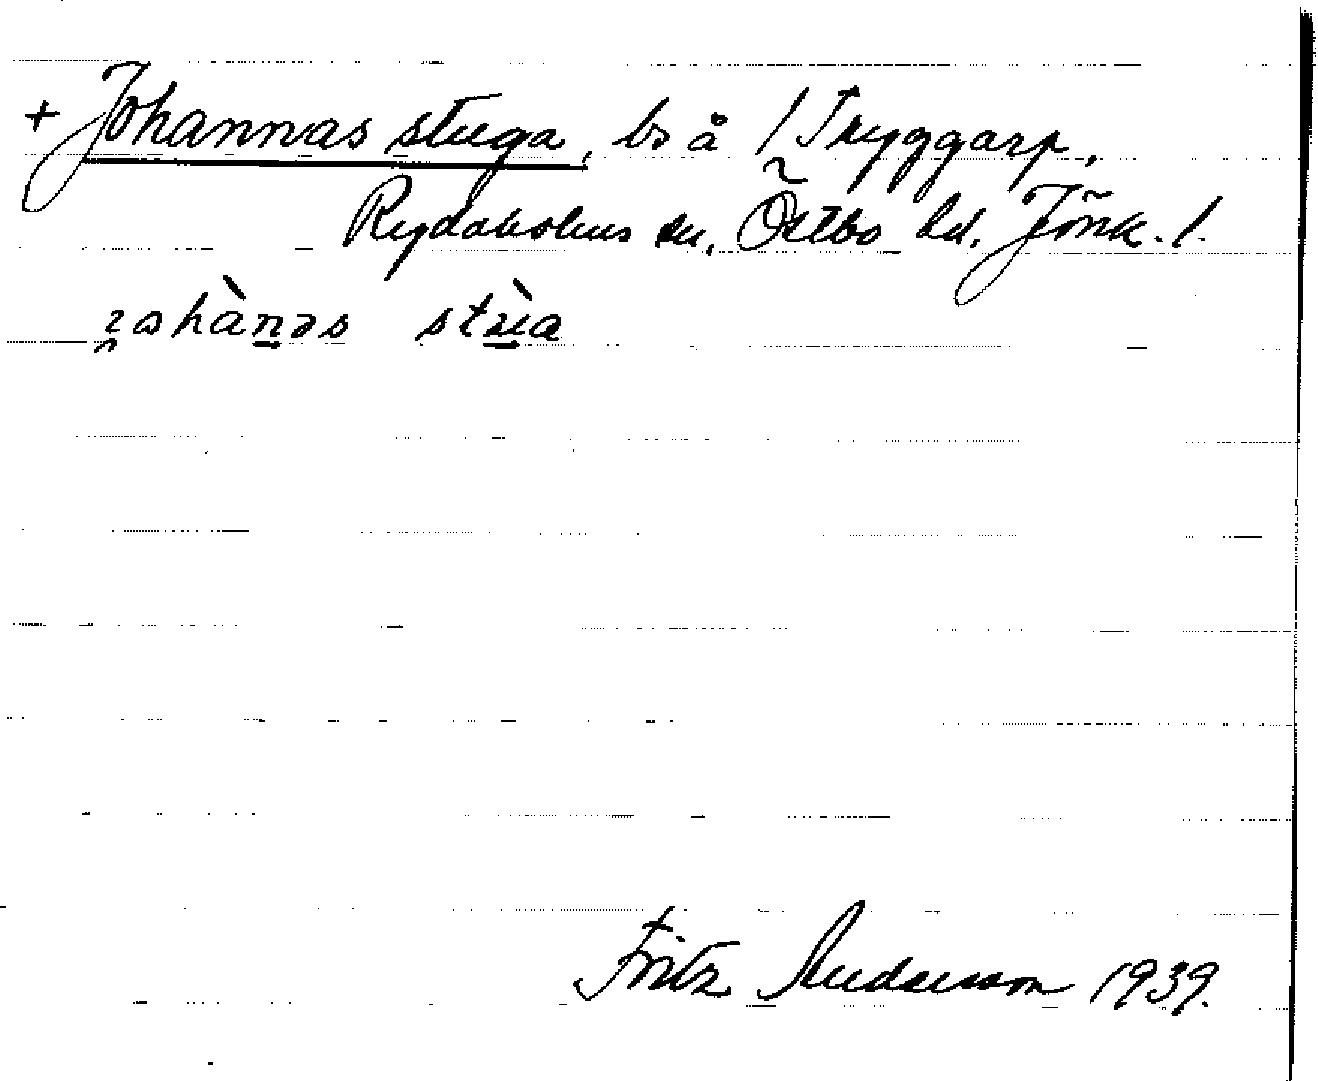 + Johannas stuga, bs å 1 Tryggarp,
Rydaholms sn, Östbo hd, Jönk. l.
Fritz Andersson 1939.